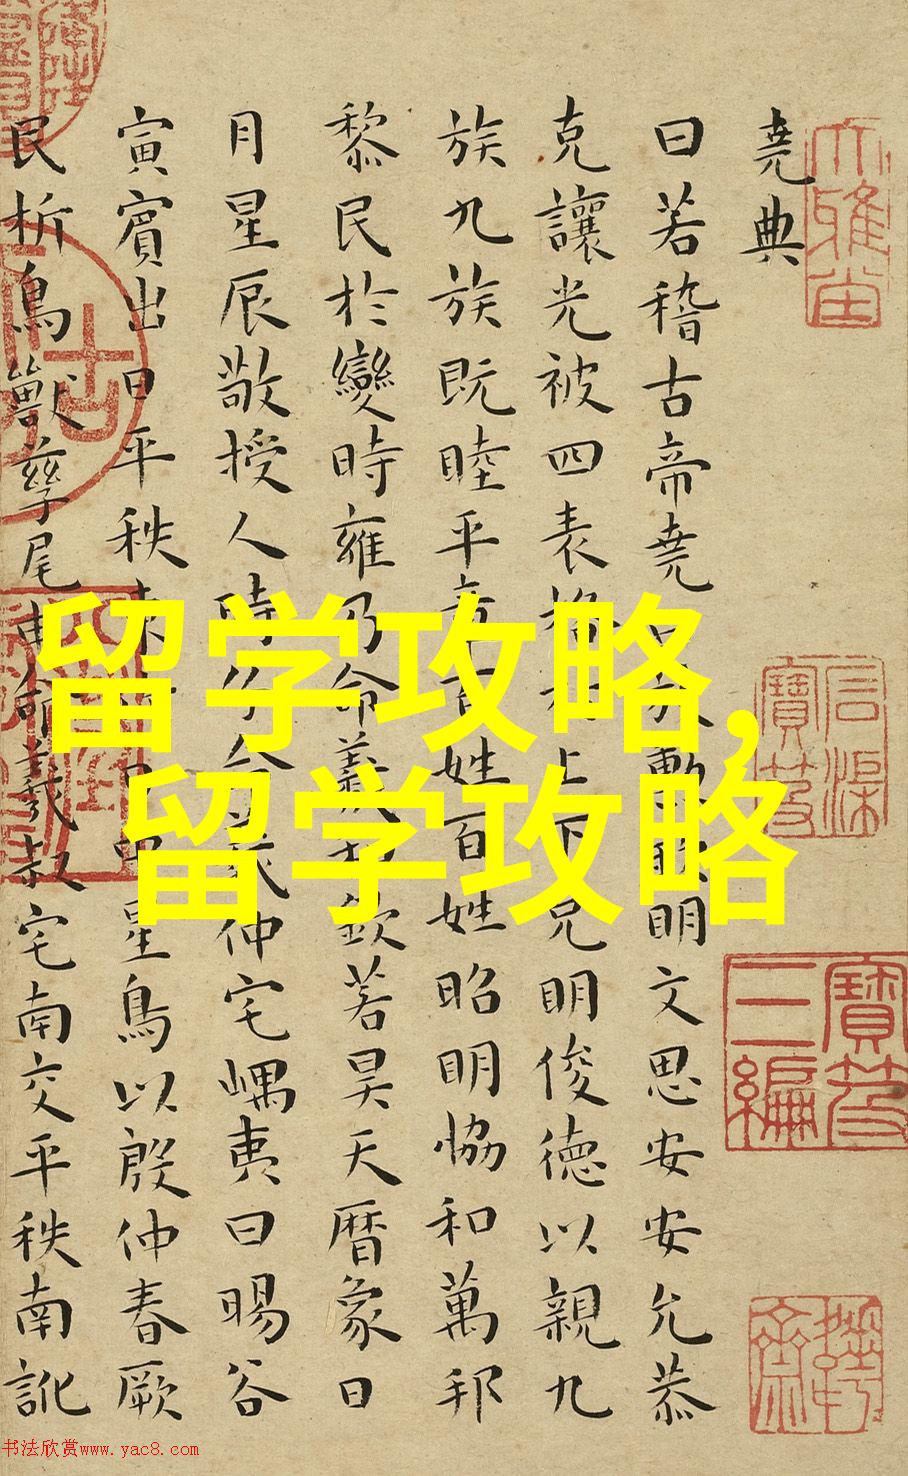 堯典
曰若稽古帝堯曰放勳欽明文思安安允恭
克讓光被四表格於上下克明俊德以親九
族九族既睦平章百姓百姓昭明恊和萬邦
黎民於變時雍乃命羲和欽若昊天曆象日
月星辰敬授人時分命羲仲宅嵎夷曰暘谷
寅賓出日平秩東作日中星鳥以殷仲春厥
民析鳥獸孳尾申命羲叔宅南交平秩南訛
留学攻略,
留学攻略
石渠寶笈
寶笈三編
书法欣赏www.yac8.com